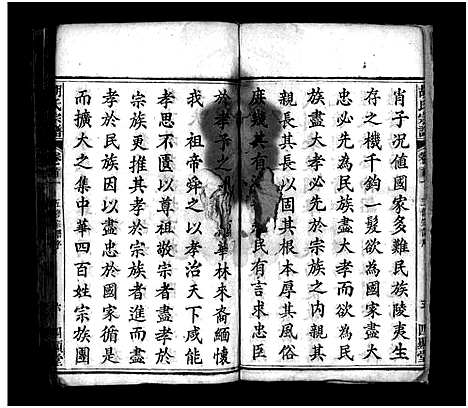 胡氏宗譜
肖子况值國家多難民族陵夷生
存之機千鈞一髮欲為國家盡
忠必先為民族盡大孝欲為民
族盡大孝必先於宗族之內親其
親長其長以固其根本厚其風俗
庶幾其有
民有言求忠臣
於孝子之
華林來裔緬懷
我祖帝舜之以孝治天下咸能
孝思不匱以尊祖敬宗者盡孝於
宗族更推其孝於宗族者進而盡
孝於民族因以盡忠於國家循是
而擴大之集中華四百姓宗族團
胡氏宗譜